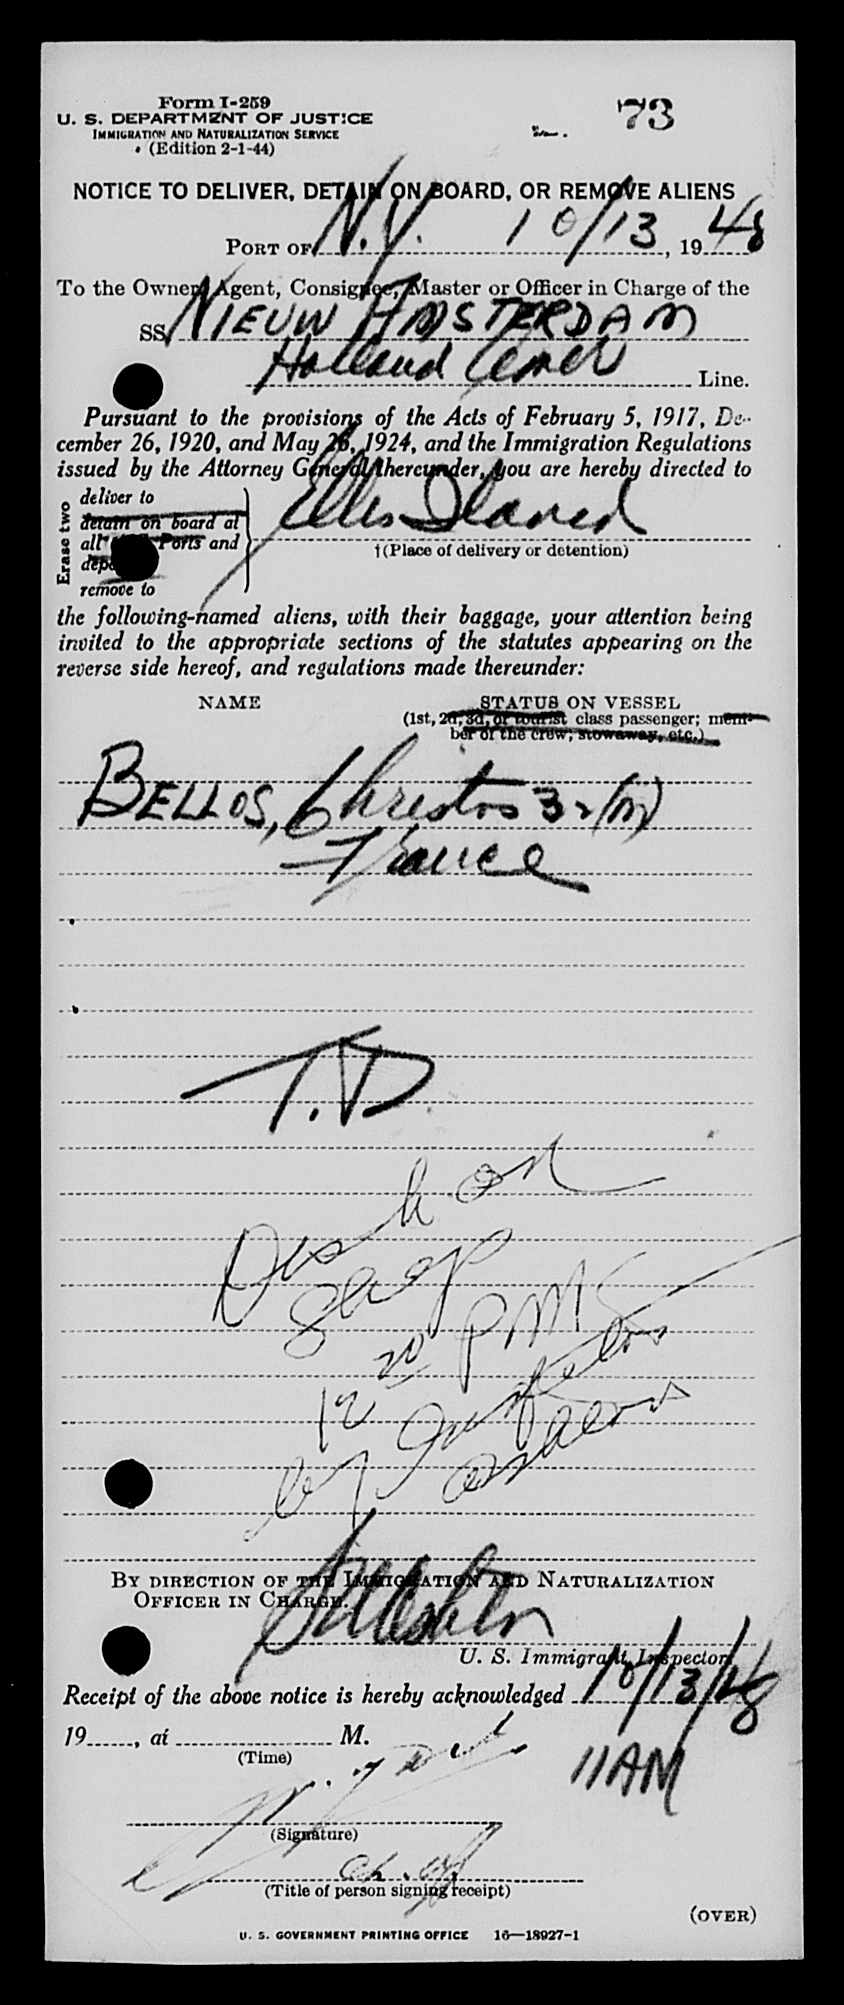 Form I-259
U. S. DEPARTMENT OF JUSTICE
IMMIGRATION AND NATURALIZATION SERVICE
(Edition 2-1-44)
73
NOTICE TO DELIVER, DETAIN ON BOARD, OR REMOVE ALIENS
PORT OF N.Y. 10/13, 1948
To the Owner, Agent, Consignee, Master or Officer in Charge of the
SS NIEUW AMSTERDAM
Holland Line.
Pursuant to the provisions of the Acts of February 5, 1917, De-
cember 26, 1920, and May 26, 1924, and the Immigration Regulations
issued by the Attorney General thereunder, you are hereby directed to
Erase two
deliver to
detain on board at
all Ports and
remove to
Ellis Island
†(Place of delivery or detention)
the following-named aliens, with their baggage, your attention being
invited to the appropriate sections of the statutes appearing on the
reverse side hereof, and regulations made thereunder:
NAME STATUS ON VESSEL
(1st, 2d, 3d, or tourist class passenger; mem-
ber of the crew; stowaway, etc.)
BELLOS, Christos 32 (M)
France
T.D.
on
Ship
12 20 PM
by Inspector
BY DIRECTION OF THE IMMIGRATION AND NATURALIZATION
OFFICER IN CHARGE.
U. S. Immigrant Inspector.
Receipt of the above notice is hereby acknowledged 10/13/48
19......, at M.
(Time)
11AM
(Signature)
(Title of person signing receipt)
(OVER)
U. S. GOVERNMENT PRINTING OFFICE 16—18927-1